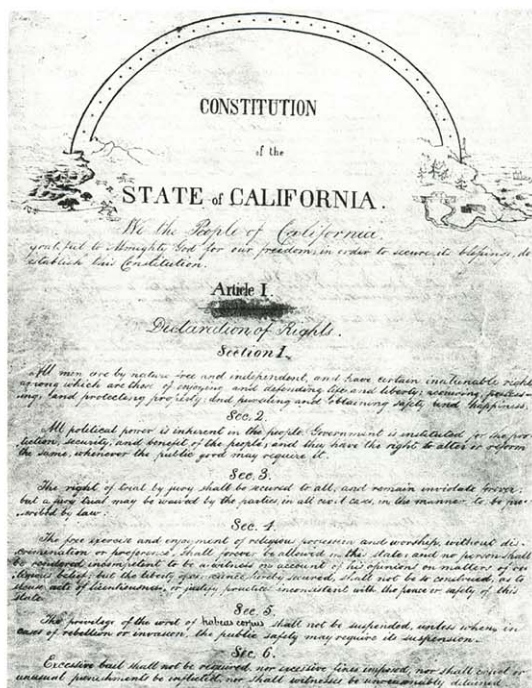 CONSTITUTION
of the
STATE of CALIFORNIA.
We the People of California
grateful to Almighty God for our freedom: in order to secure its blessings, do
establish this Constitution.
Article I.
Declaration of Rights.
Section 1.
All men are by nature free and independent, and have certain inalienable rights
among which are those of enjoying and defending life and liberty; acquiring, possess-
ing, and protecting property; and pursuing and obtaining safety and happiness
Sec. 2.
All political power is inherent in the people. Government is instituted for the pro-
tection, security, and benefit of the people; and they have the right to alter or reform
the same, whenever the public good may require it.
Sec. 3.
The right of trial by jury shall be secured to all, and remain inviolate forever:
but a jury trial may be waived by the parties, in all civil cases, in the manner, to be pre-
scribed by law.
Sec. 4.
The free exercise and enjoyment of religious profession and worship, without dis-
crimination or preference, shall forever be allowed in this state: and no person shall
be rendered incompetent to be a witness on account of his opinion on matters of re-
ligious belief; but the liberty of conscience, hereby secured, shall not be so construed, as to
excuse acts of licentiousness, or justify practices inconsistent with the peace or safety of this
state.
Sec. 5.
The privilege of the writ of habeas corpus shall not be suspended, unless when, in
cases of rebellion or invasion, the public safety may require its suspension.
Sec. 6.
Excessive bail shall not be required, nor excessive fines imposed, nor shall cruel or
unusual punishments be inflicted, nor shall witnesses be unreasonably detained